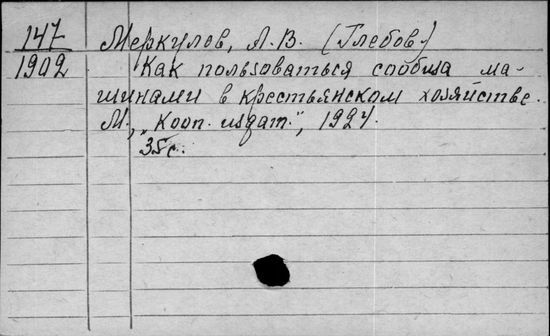 147 Меркулов, А. В. (Глебов)
1902 Как пользоваться сообща ма-
шинами в крестьянском хозяйстве.
М., "Кооп. издат.", 1924.
35 с.